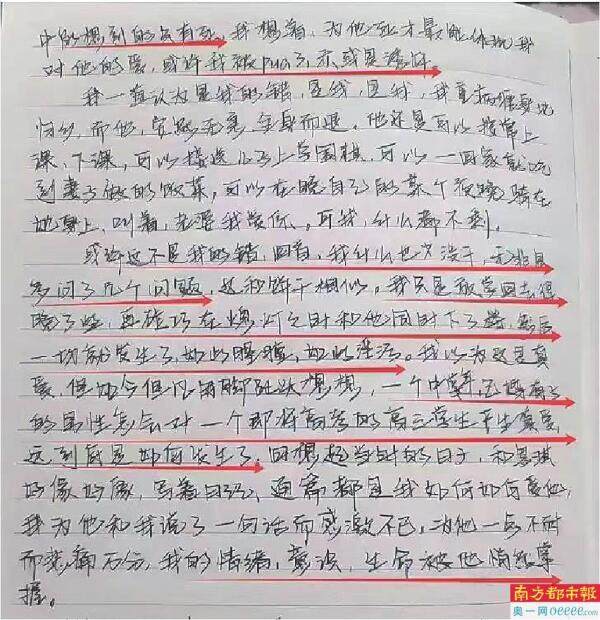 中的想到的只有死。我想着,为他死才最能体现我
对他的爱,或许我被pua了,亦或是
我一直认为是我的错,是我,是我,我
而他,安然无恙,全身而退。他还是可以
课,下课,可以接送儿子上学围棋,可以一回家就吃
到妻子做的饭菜,可以在晚自习的某个夜晚骑在
她身上,叫着,老婆我爱你。可我,什么都不剩。
或许这不是我的错,回首,我什么也没干,无非是
多问了几个问题,这和饼干相似。我只是教学回去得
晚了些,再碰巧在熄灯之时和他同时下了楼,然后
一切就发生了,如此,如此。我以为这是真
爱,但如今但凡用脚趾头想想,一个中年,已婚有子
的男性怎会对一个即将高考的高三学生产生真爱,
这到底是如何发生了。回想起当时的日子,和思琪
好像好像,写着日记,通篇都是我如何如何爱他,
我为他和我说了一句话而感激不已,为他一点不耐
而悲痛万分,我的情绪,意识,生命被他情绪掌
握。
南方都市报
奥一网oeeee.com